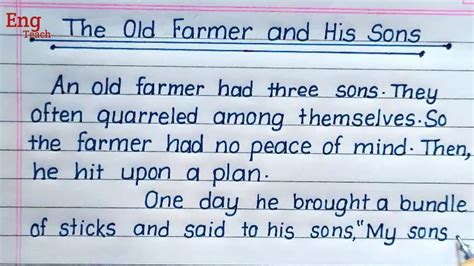 Eng
Teach
The Old Farmer and His Sons
An old farmer had three sons. They
often quarreled among themselves. So
the farmer had no peace of mind. Then,
he hit upon a plan.
One day he brought a bundle
of sticks and said to his sons, "My sons